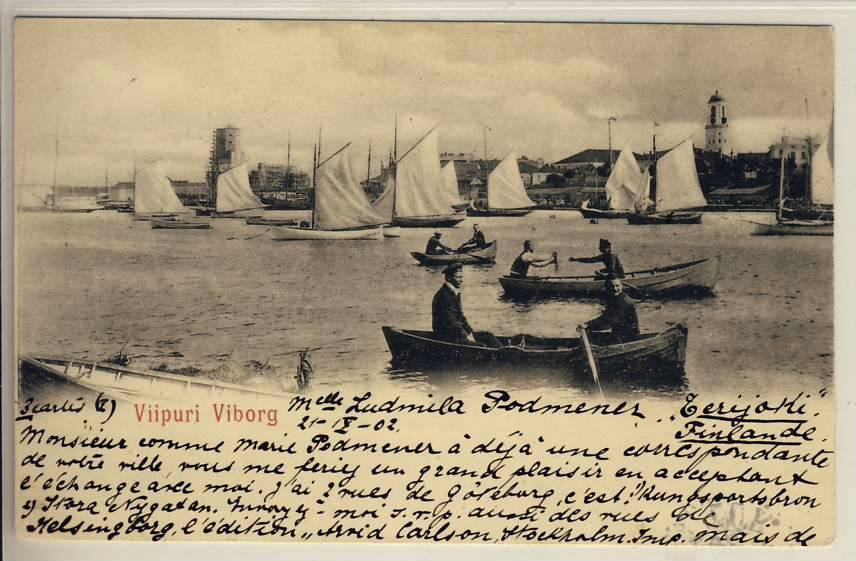 3 cartes (I) Viipuri Viborg Melle Ludmila Podmener „Terijoki”.
21-IX-02. Finlande.
Monsieur comme Marie Podmener à déjà une correspondante
de votre ville, vous me feriez un grand plaisir en acceptant
l'échange avec moi. J'ai 2 vues de Göteborg, c'est: "Kungsportsbron
et Stora Nygatan. Envoyez-moi s.v.p. aussi des vues de
Helsingborg, l'edition „Arvid Carlson, Stockholm. Imp. mais de